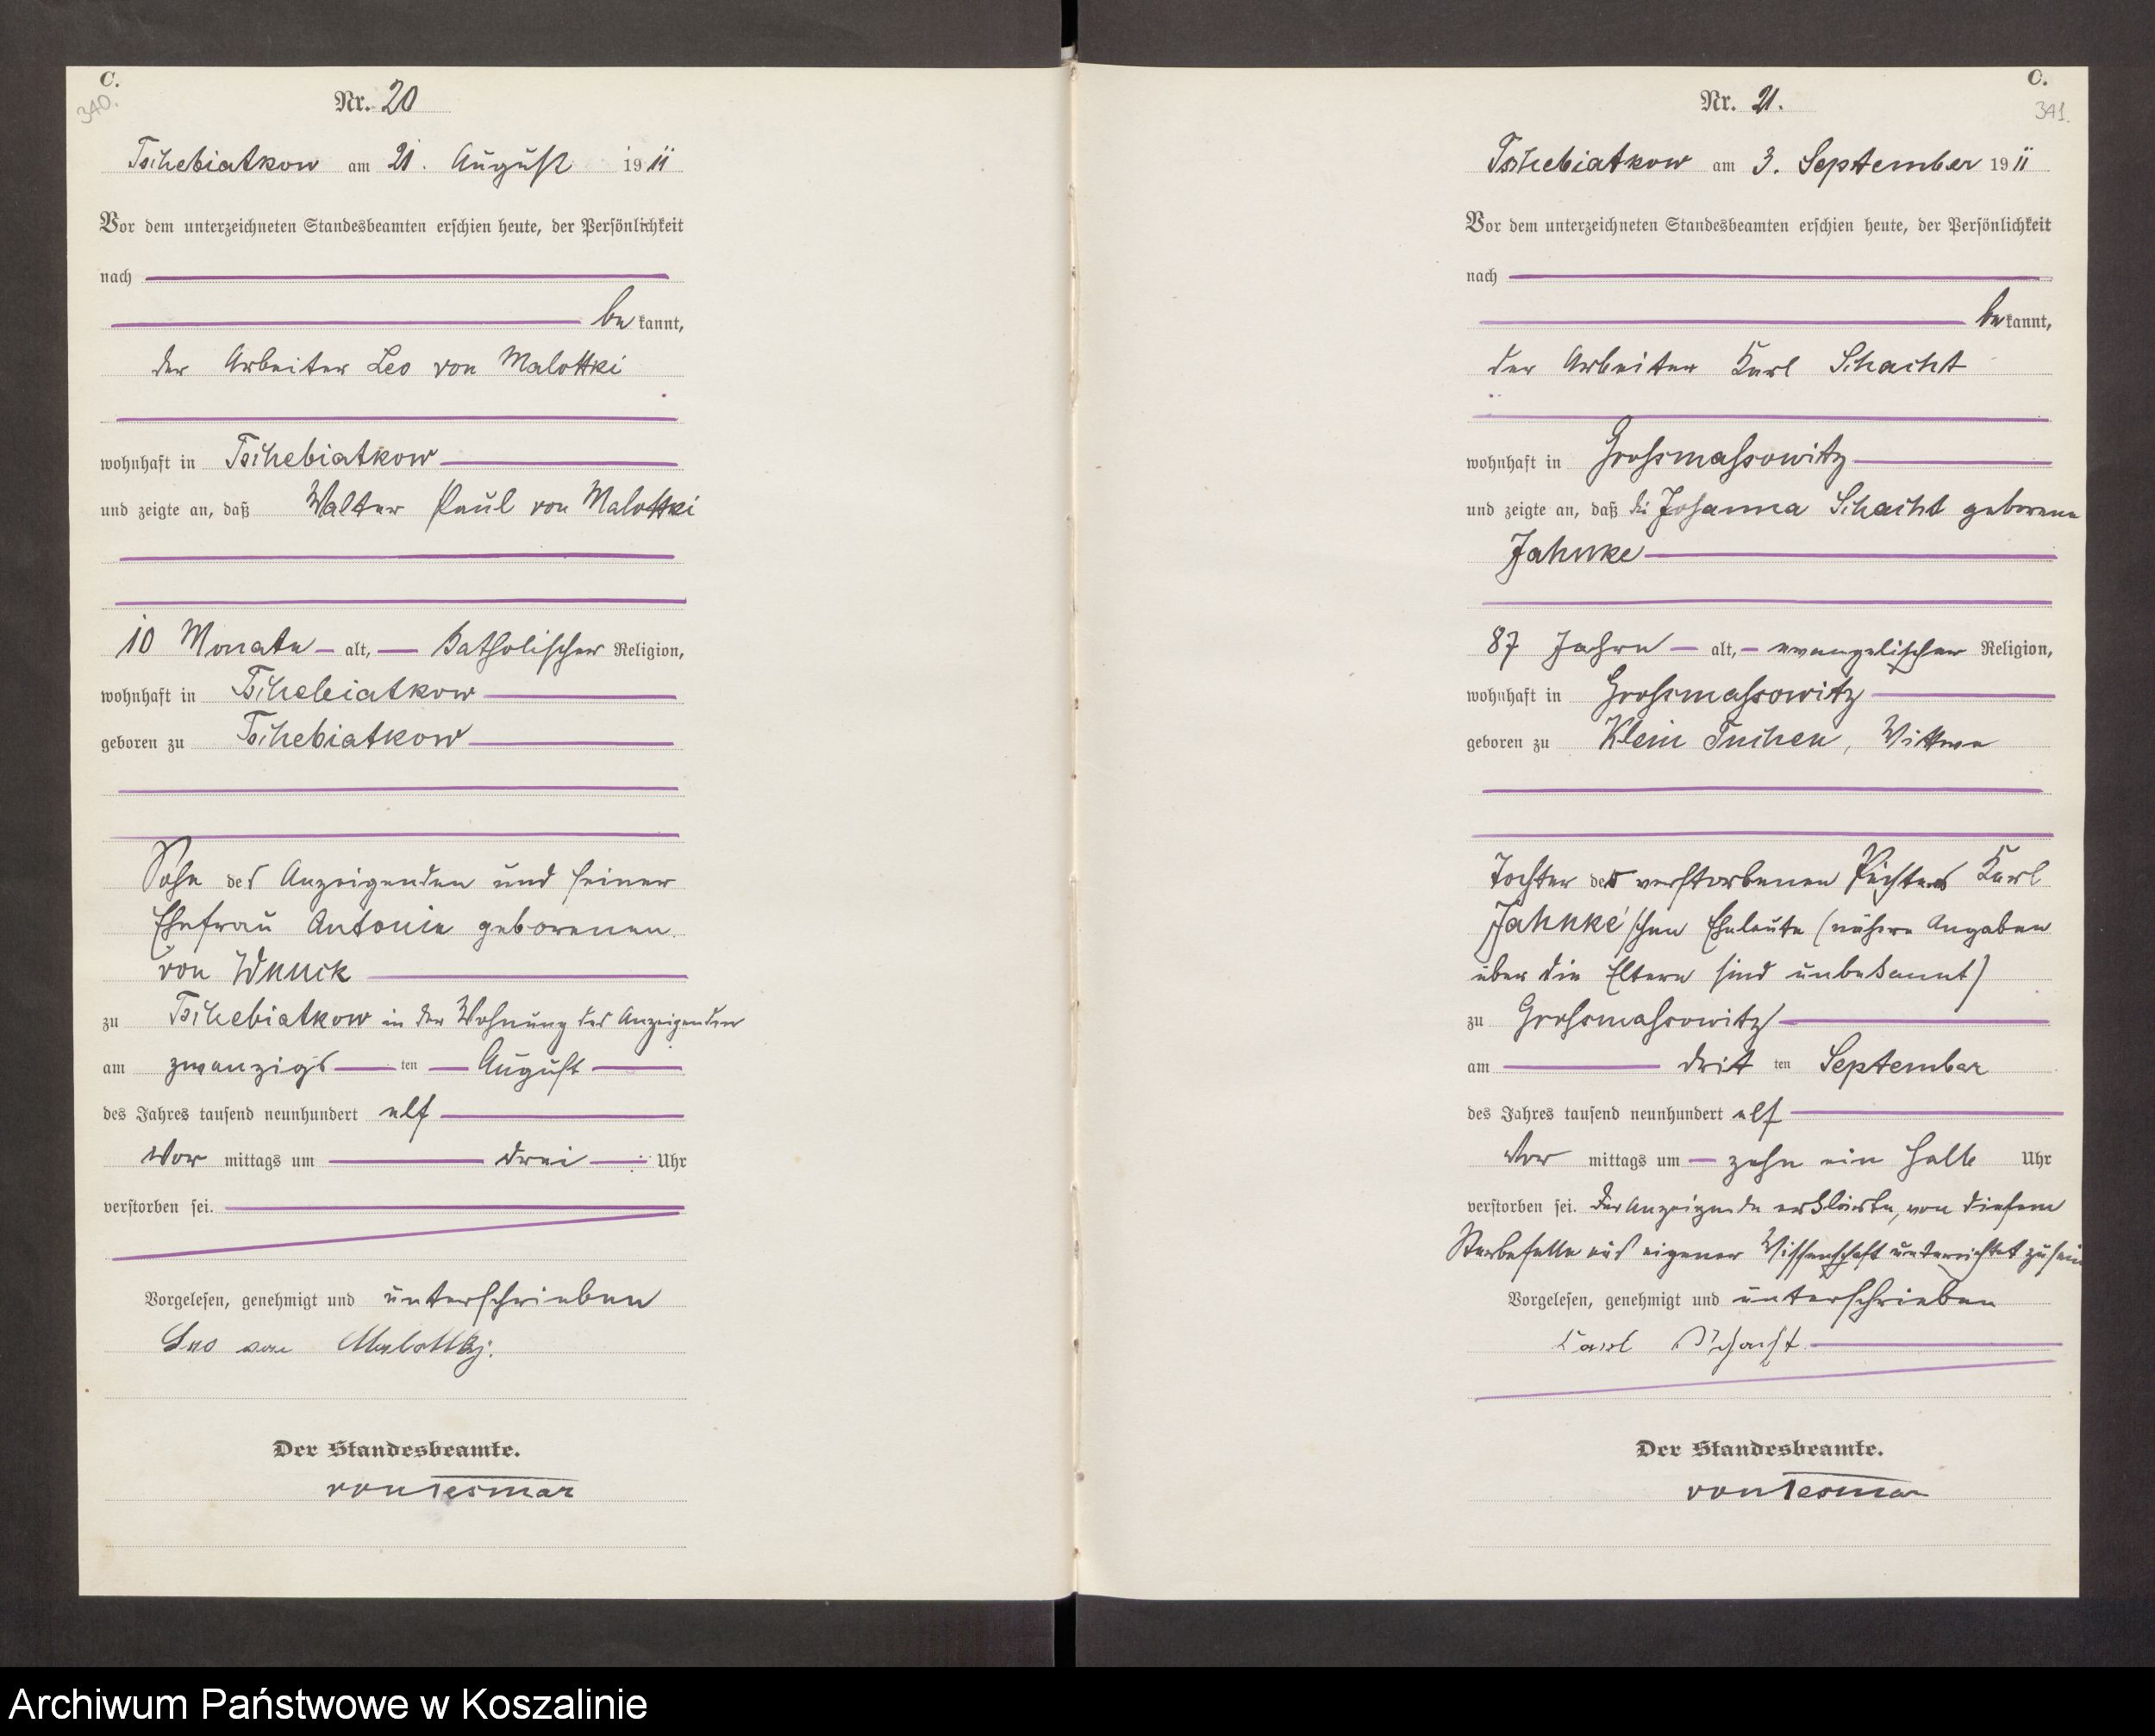 C.
340.
Nr. 20
Tschebiatkow am 21. August 1911
Vor dem unterzeichneten Standesbeamten erschien heute, der Persönlichkeit
nach
be kannt,
der Arbeiter Leo von Malottki
wohnhaft in Tschebiatkow
und zeigte an, daß Walter Paul von Malottki
10 Monate alt, katholischer Religion,
wohnhaft in Tschebiatkow
geboren zu Tschebiatkow
Sohn des Anzeigenden und seiner
Ehefrau Antonie geborenen
von Wnuck
zu Tschebiatkow in der Wohnung des Anzeigenden
am zwanzigs ten August
des Jahres tausend neunhundert elf
Vor mittags um drei Uhr
verstorben sei.
Vorgelesen, genehmigt und unterschrieben
Leo von Malottki.
Der Standesbeamte.
von Tesmar
C.
341.
Nr. 21.
Tschebiatkow am 3. September 1911
Vor dem unterzeichneten Standesbeamten erschien heute, der Persönlichkeit
nach
be kannt,
der Arbeiter Karl Schacht
wohnhaft in Grossmassowitz
und zeigte an, daß die Johanna Schacht geborene
Jahnke
87 Jahre alt, evangelischer Religion,
wohnhaft in Grossmassowitz
geboren zu Klein Tuchen, Wittwe
Tochter der verstorbenen Pächter Karl
Jahnke'schen Eheleute (nähere Angaben
über die Eltern sind unbekannt)
zu Grossmassowitz
am drit ten September
des Jahres tausend neunhundert elf
Vor mittags um zehn ein halb Uhr
verstorben sei. Der Anzeigende erklärte, von diesem
Sterbefalle aus eigener Wissenschaft unterrichtet zu sein
Vorgelesen, genehmigt und unterschrieben
Karl Schacht
Der Standesbeamte.
von Tesmar
Archiwum Państwowe w Koszalinie